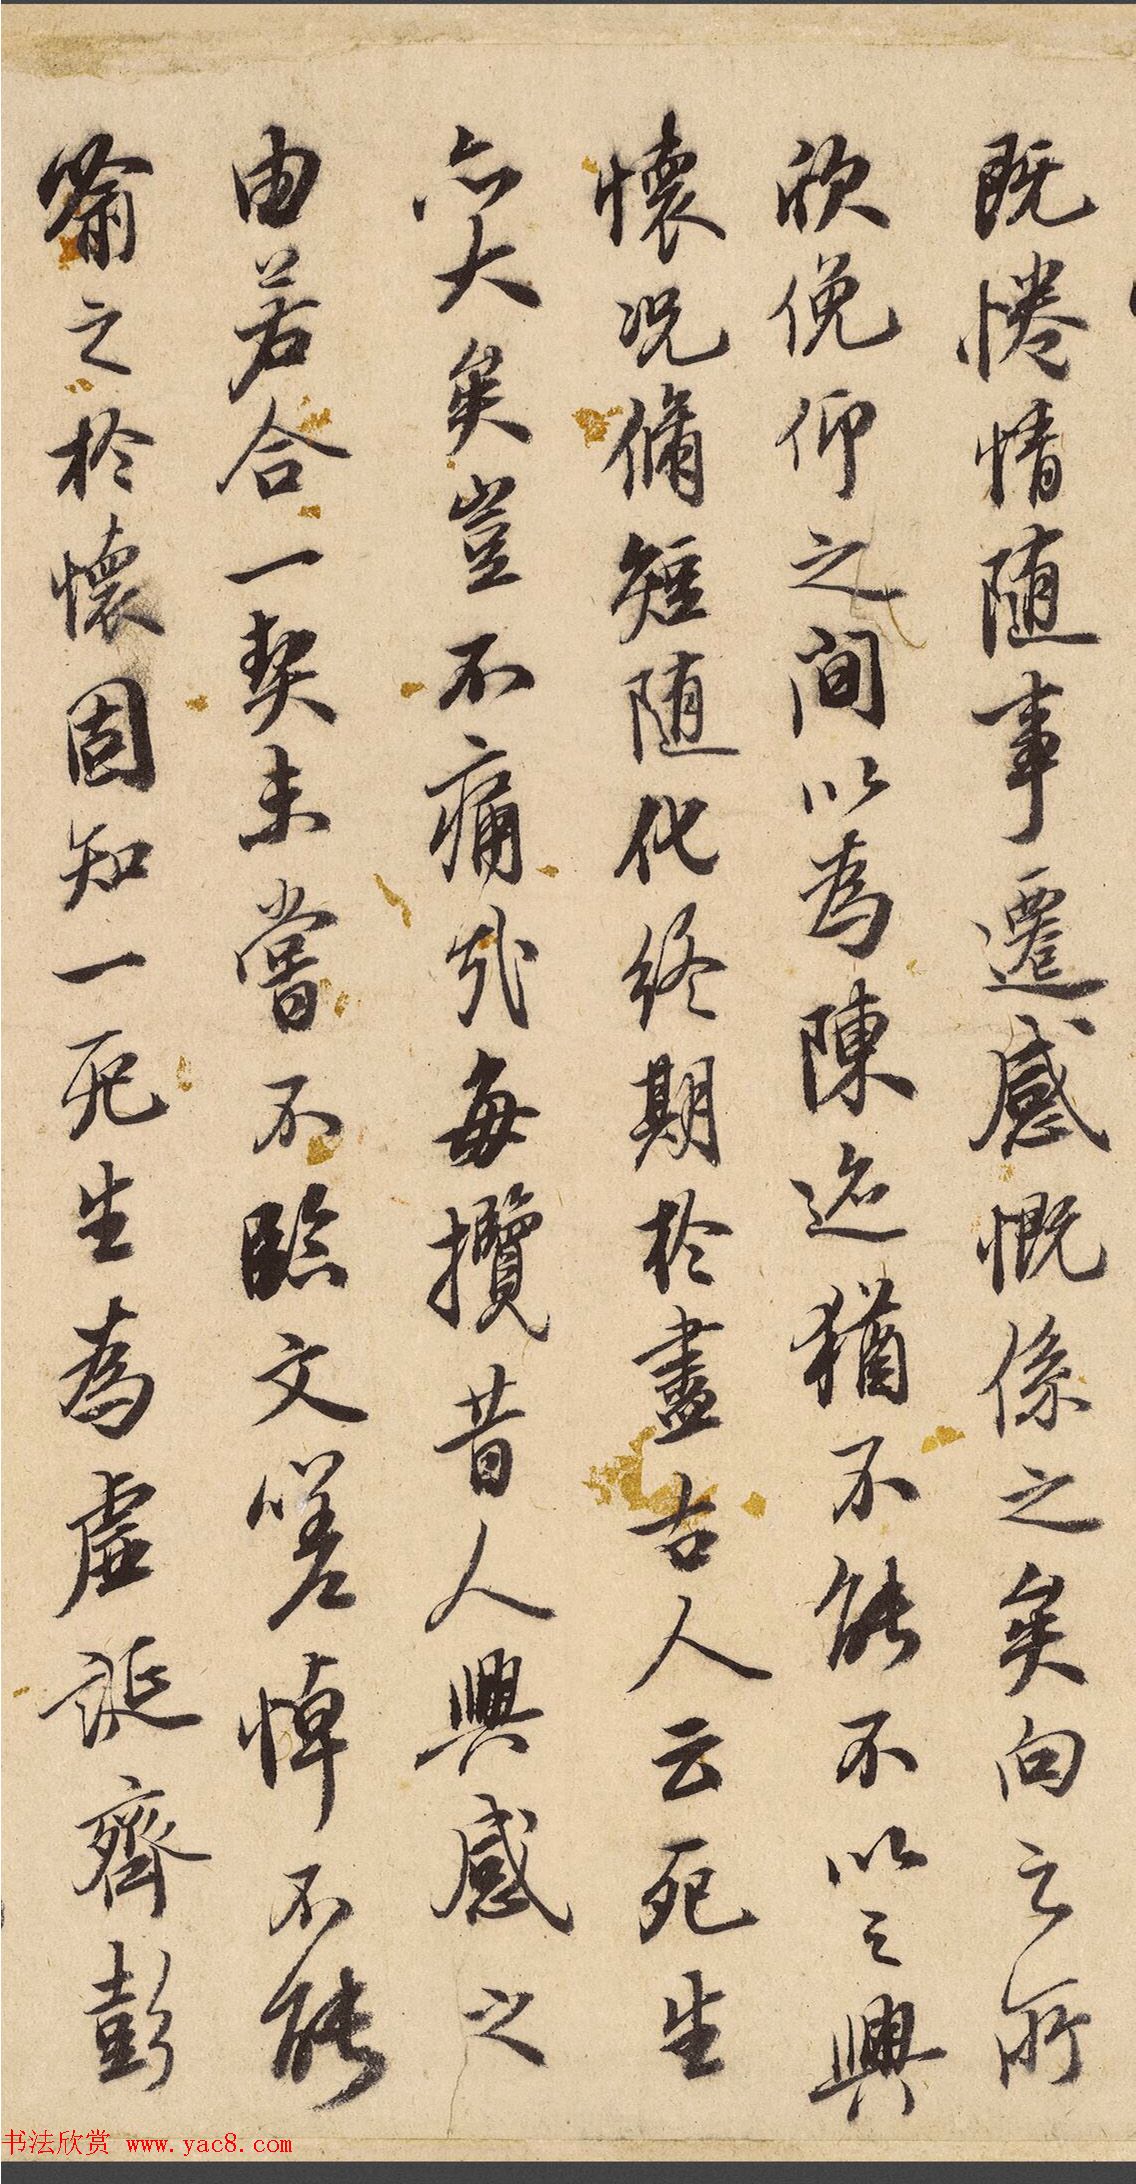 既惓情随事遷感慨係之矣向之所
欣俛仰之間以為陳迹猶不能不以之興
懷況脩短随化終期於盡古人云死生
亦大矣豈不痛哉每攬昔人興感之
由若合一契未嘗不臨文嗟悼不能
喻之於懷固知一死生為虛誕齊彭
书法欣赏 www.yac8.com